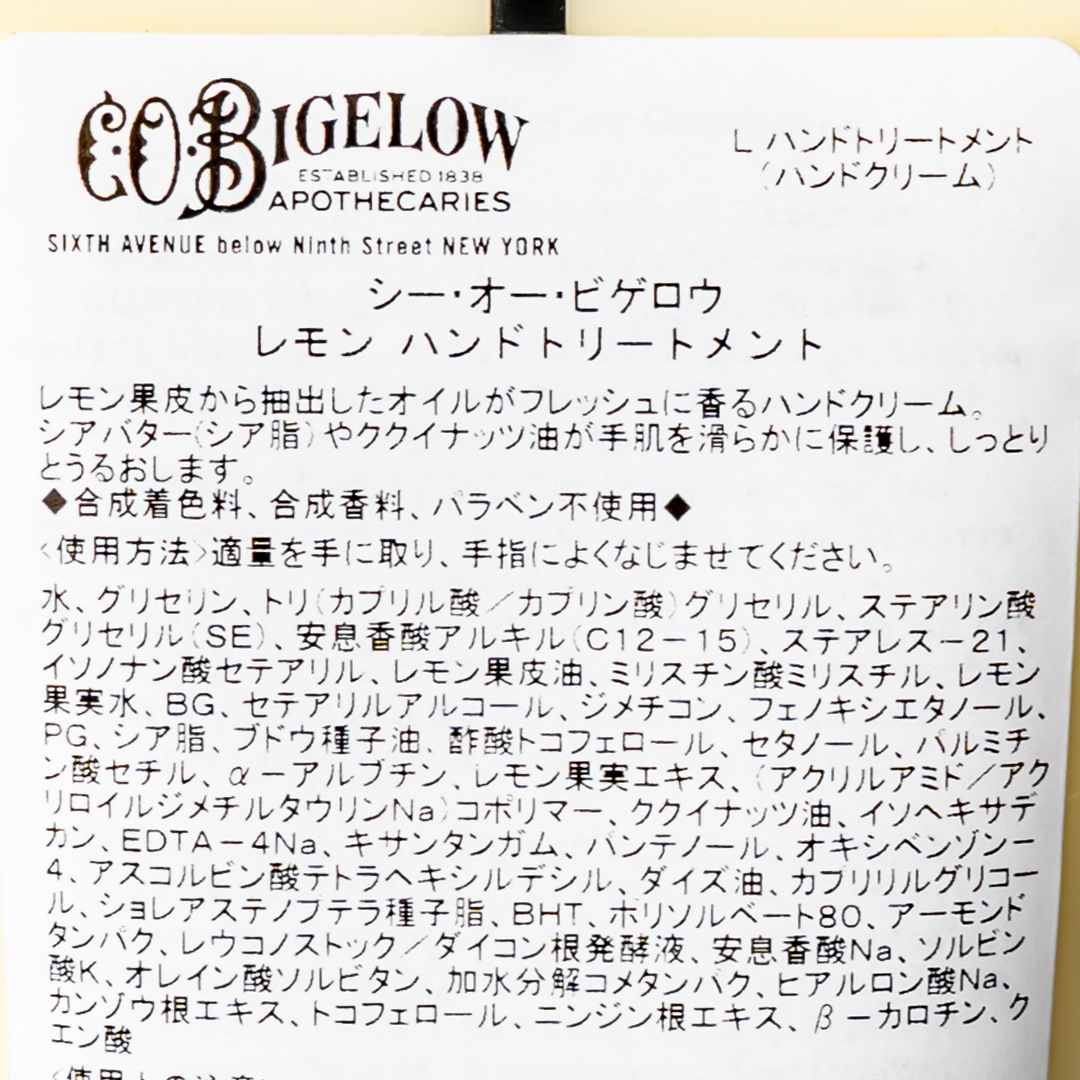 C.O. BIGELOW
ESTABLISHED 1838
APOTHECARIES
SIXTH AVENUE below Ninth Street NEW YORK
L ハンドトリートメント
(ハンドクリーム)
シー・オー・ビゲロウ
レモン ハンドトリートメント
レモン果皮から抽出したオイルがフレッシュに香るハンドクリーム。
シアバター(シア脂)やククイナッツ油が手肌を滑らかに保護し、しっとり
とうるおします。
◆合成着色料、合成香料、パラベン不使用◆
<使用方法>適量を手に取り、手指によくなじませてください。
水、グリセリン、トリ(カプリル酸/カプリン酸)グリセリル、ステアリン酸
グリセリル(SE)、安息香酸アルキル(C12-15)、ステアレス-21、
イソノナン酸セテアリル、レモン果皮油、ミリスチン酸ミリスチル、レモン
果実水、BG、セテアリルアルコール、ジメチコン、フェノキシエタノール、
PG、シア脂、ブドウ種子油、酢酸トコフェロール、セタノール、パルミチ
ン酸セチル、α-アルブチン、レモン果実エキス、(アクリルアミド/アク
リロイルジメチルタウリンNa)コポリマー、ククイナッツ油、イソヘキサデ
カン、EDTA-4Na、キサンタンガム、パンテノール、オキシベンゾン-
4、アスコルビン酸テトラヘキシルデシル、ダイズ油、カプリリルグリコー
ル、ショレアステノプテラ種子脂、BHT、ポリソルベート80、アーモンド
タンパク、レウコノストック/ダイコン根発酵液、安息香酸Na、ソルビン
酸K、オレイン酸ソルビタン、加水分解コメタンパク、ヒアルロン酸Na、
カンゾウ根エキス、トコフェロール、ニンジン根エキス、β-カロチン、ク
エン酸